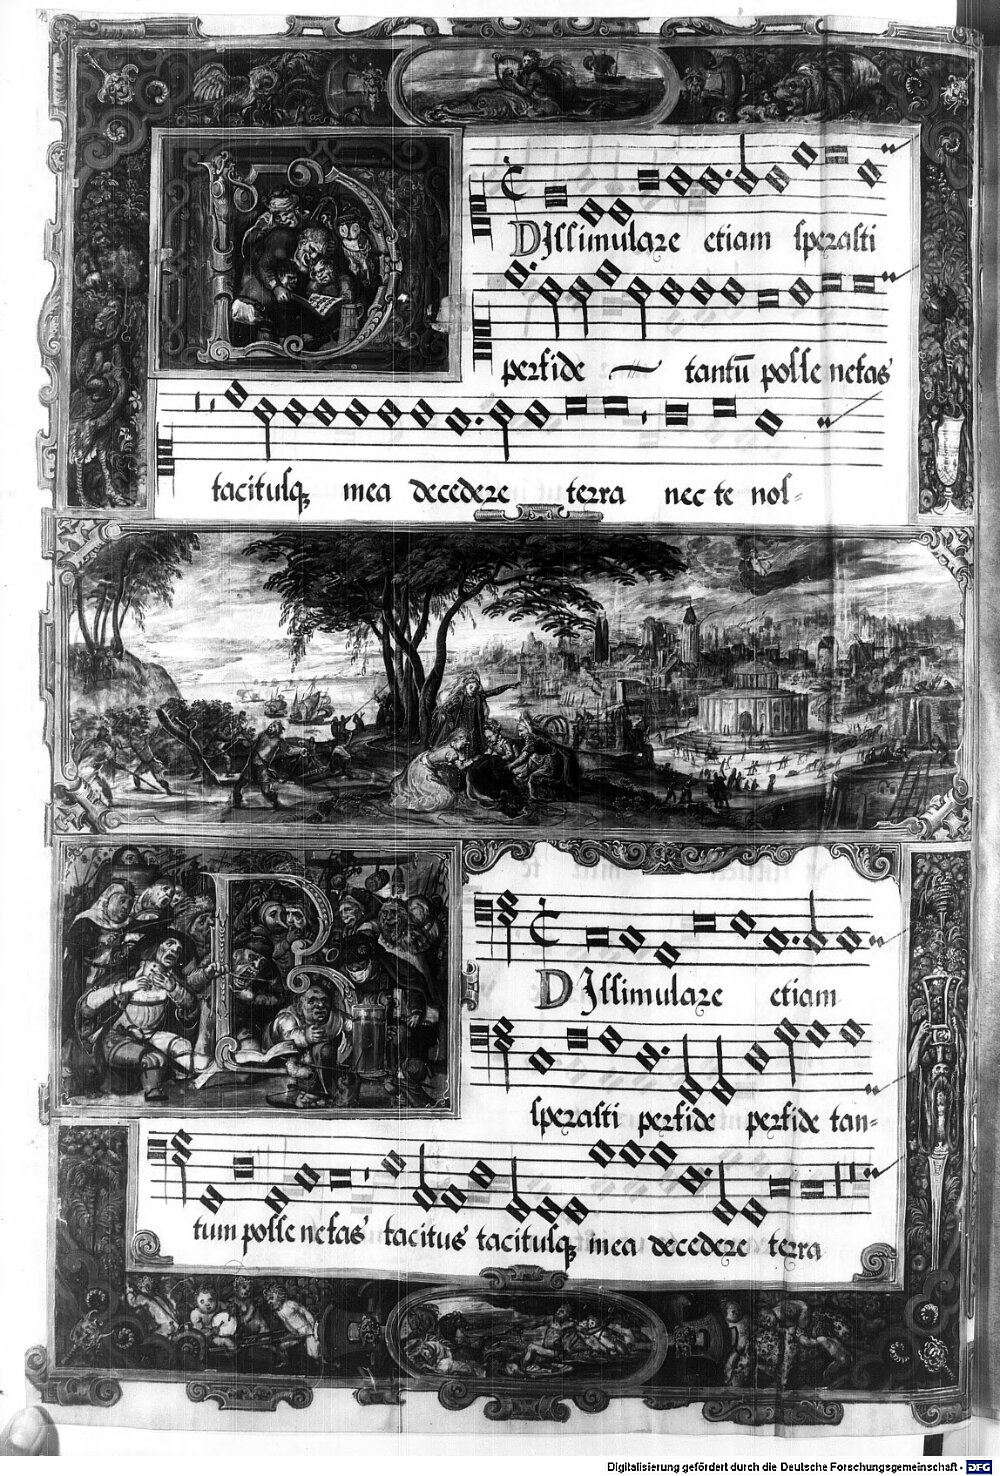 DIssimulare etiam sperasti
perfide tantū posse nefas
tacitusq; mea decedere terra nec te nos=
DIssimulare etiam
sperasti perfide perfide tan=
tum posse nefas tacitus tacitusq; mea decedere terra
Digitalisierung gefördert durch die Deutsche Forschungsgemeinschaft - DFG